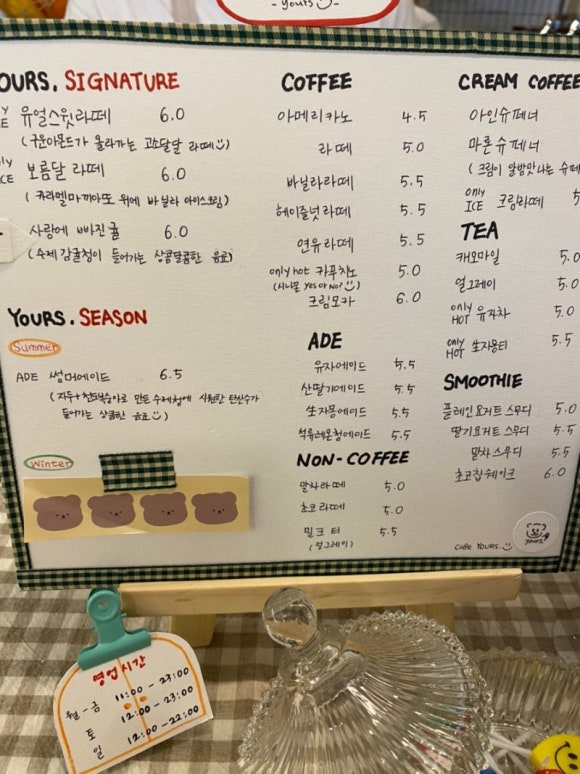 - yours -
OURS. SIGNATURE
유얼스윗라떼 6.0
(구운아몬드가 올라가는 고소달달 라떼)
only ICE 보름달 라떼 6.0
(캬라멜마끼아또 위에 바닐라 아이스크림)
사랑에 빠진귤 6.0
(수제 감귤청이 들어가는 상콤달콤한 음료)
YOURS. SEASON
Summer
ADE 썸머에이드 6.5
들어가는 상콤한 음료
Winter
COFFEE
아메리카노 4.5
라떼 5.0
바닐라라떼 5.5
헤이즐넛라떼 5.5
연유라떼 5.5
only hot 카푸치노 5.0
(시나몬 Yes or No?)
크림모카 6.0
ADE
유자에이드 5.5
산딸기에이드 5.5
生자몽에이드 5.5
석류레몬청에이드 5.5
NON-COFFEE
말차라떼 5.0
초코라떼 5.0
밀크티 5.5
(얼그레이)
CREAM COFFEE
아인슈페너
마론슈페너
(크림이 알밤맛나는 슈페
only ICE 크림라떼 5
TEA
캐모마일 5.0
얼그레이 5.0
only HOT 유자차 5.0
only HOT 生자몽티 5.5
SMOOTHIE
플레인요거트스무디 5.0
딸기요거트스무디 5.5
말차스무디 5.5
초코칩쉐이크 6.0
Cafe YOURS.
yours
영업시간
월-금 11:00-23:00
토 12:00-23:00
일 12:00-22:00